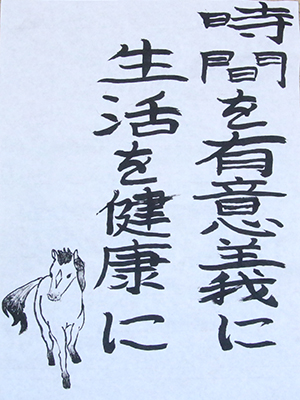 時間を有意義に
生活を健康に